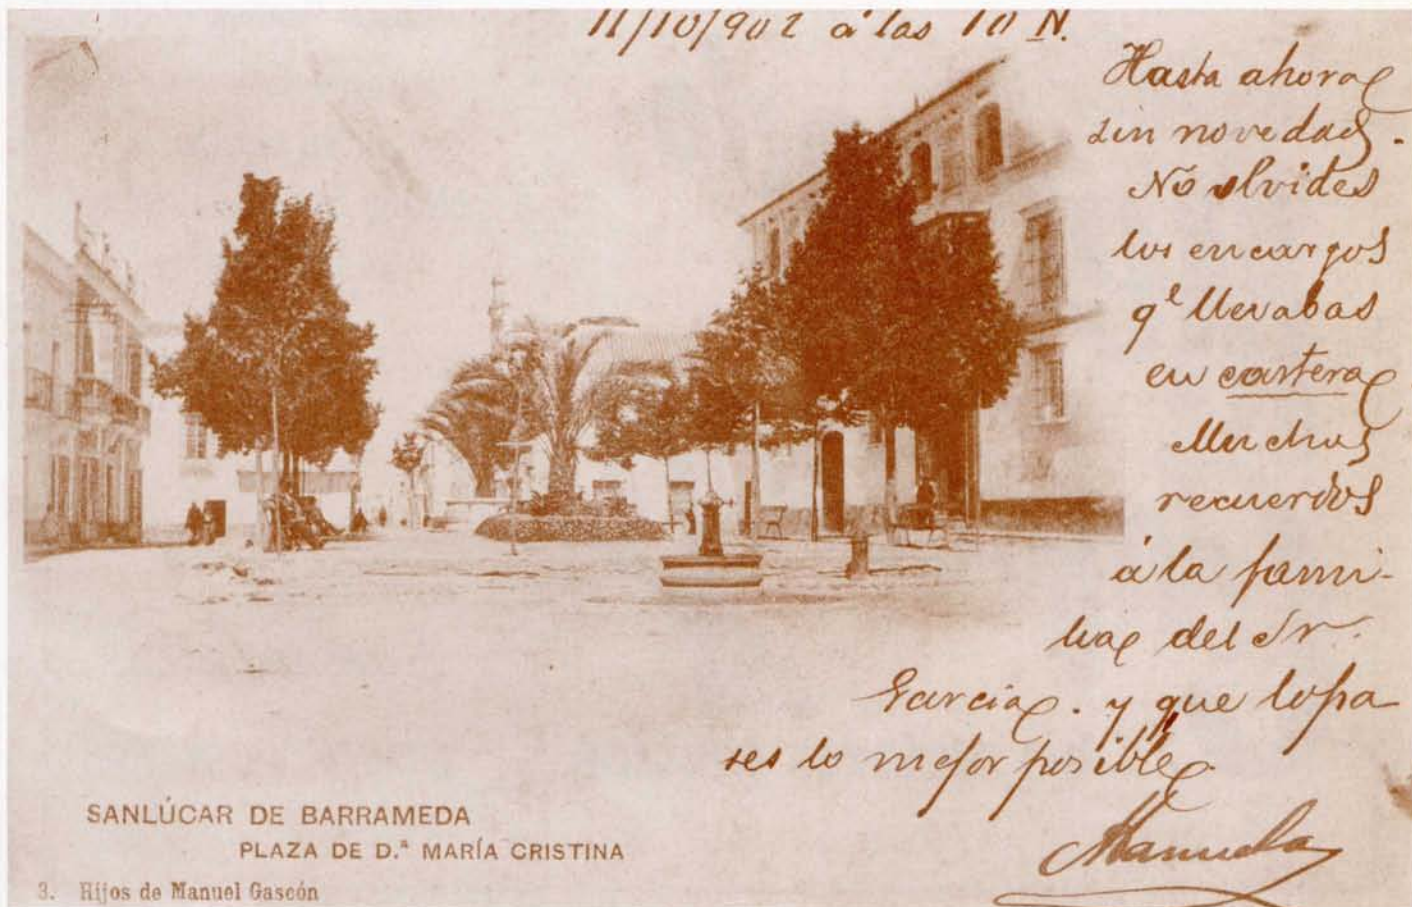 11/10/902 á las 10 N.
Hasta ahora
sin novedad.
No olvides
los encargos
qe llevabas
en cartera
Muchos
recuerdos
á la fami-
lia del Sr.
Garcia. y que lo pa
ses lo mejor posible
Manuela
SANLÚCAR DE BARRAMEDA
PLAZA DE D.ª MARÍA CRISTINA
3. Hijos de Manuel Gascón